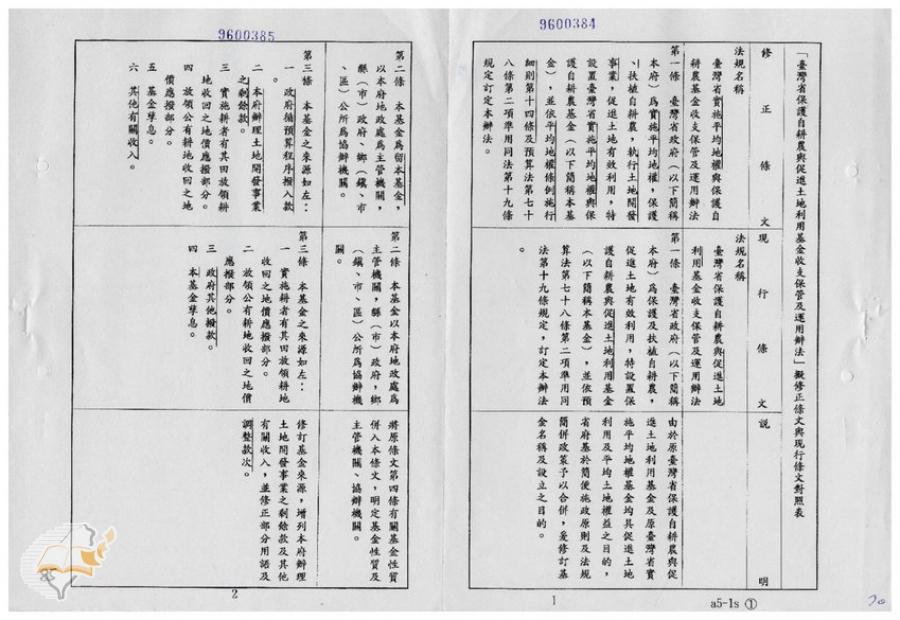 9600384
「臺灣省保護自耕農與促進土地利用基金收支保管及運用辦法」擬修正條文與現行條文對照表
修正條文
法規名稱
臺灣省實施平均地權與保護自
耕農基金收支保管及運用辦法
第一條 臺灣省政府(以下簡稱
本府)為實施平均地權,保護
、扶植自耕農,執行土地開發
事業,促進土地有效利用,特
設置臺灣省實施平均地權與保
護自耕農基金(以下簡稱本基
金),並依平均地權條例施行
細則第十四條及預算法第七十
八條第二項準用同法第十九條
規定訂定本辦法。
現行條文
法規名稱
臺灣省保護自耕農與促進土地
利用基金收支保管及運用辦法
第一條 臺灣省政府(以下簡稱
本府)為保護及扶植自耕農,
促進土地有效利用,特設置保
護自耕農與促進土地利用基金
(以下簡稱本基金),並依預
算法第七十八條第二項準用同
法第十九條規定,訂定本辦法
。
說明
由於原臺灣省保護自耕農與促
進土地利用基金及原臺灣省實
施平均地權基金均具促進土地
利用及平均土地權益之目的,
省府基於簡便施政原則及法規
簡併政策予以合併,爰修訂基
金名稱及設立之目的。
1
a5-1s ①
70
9600385
第二條 本基金為留本基金,
以本府地政處為主管機關,
縣(市)政府、鄉(鎮、市
、區)公所為協辦機關。
第三條 本基金之來源如左:
一 政府循預算程序撥入款
二 本府辦理土地開發事業
之剩餘款。
三 實施耕者有其田放領耕
地收回之地價應撥部分。
四 放領公有耕地收回之地
價應撥部分。
五 基金孳息。
六 其他有關收入。
第二條 本基金以本府地政處為
主管機關,縣(市)政府,鄉
(鎮、市、區)公所為協辦機
關。
第三條 本基金之來源如左:
一 實施耕者有其田放領耕地
收回之地價應撥部分。
二 放領公有耕地收回之地價
應撥部分。
三 政府其他撥款。
四 本基金孳息。
將原條文第四條有關基金性質
併入本條文,明定基金性質及
主管機關、協辦機關。
修訂基金來源,增列本府辦理
土地開發事業之剩餘款及其他
有關收入,並修正部分用語及
調整款次。
2